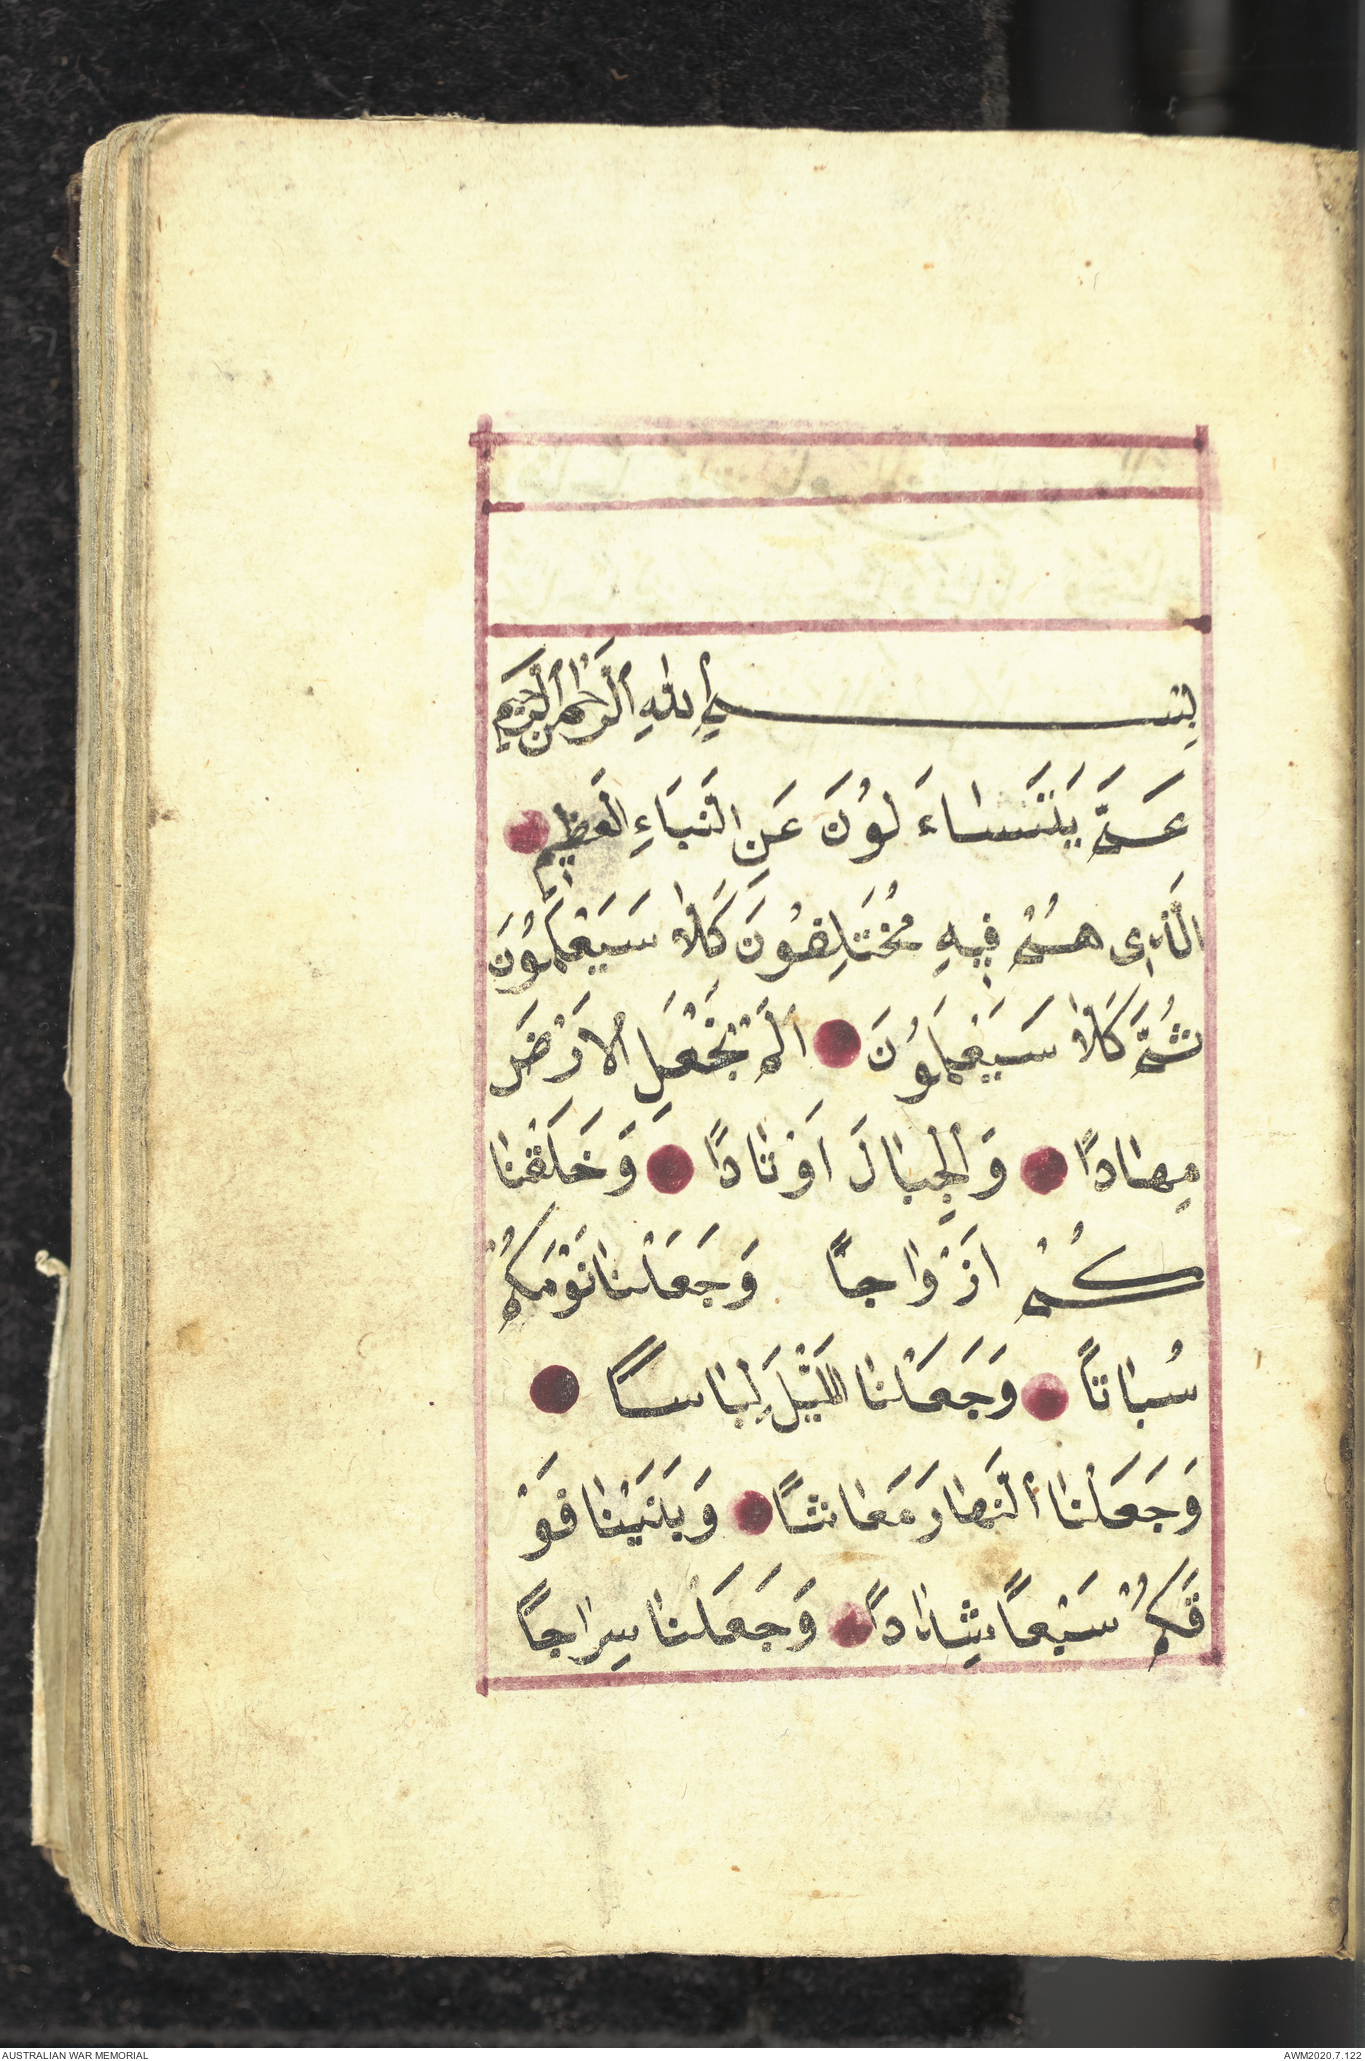 بِسْمِ اللهِ الرَّحْمٰنِ الرَّحِيمِ
عَمَّ يَتَسَاءَ لُونَ عَنِ النَّبَاءِ الْعَظِيمِ
الَّذِى هُمْ فِيهِ مُخْتَلِفُونَ كَلَّا سَيَعْلَمُونَ
ثُمَّ كَلَّا سَيَعْلَمُونَ اَلَمْ نَجْعَلِ الْاَرْضَ
مِهَادًا وَالْجِبَالَ اَوْتَادًا وَخَلَقْنَا
كُمْ اَزْوَاجًا وَجَعَلْنَا نَوْمَكُمْ
سُبَاتًا وَجَعَلْنَا اللَّيْلَ لِبَاسًا
وَجَعَلْنَا النَّهَارَ مَعَاشًا وَبَنَيْنَا فَوْ
قَكُمْ سَبْعًا شِدَادًا وَجَعَلْنَا سِرَاجًا
AUSTRALIAN WAR MEMORIAL
AWM2020.7.122